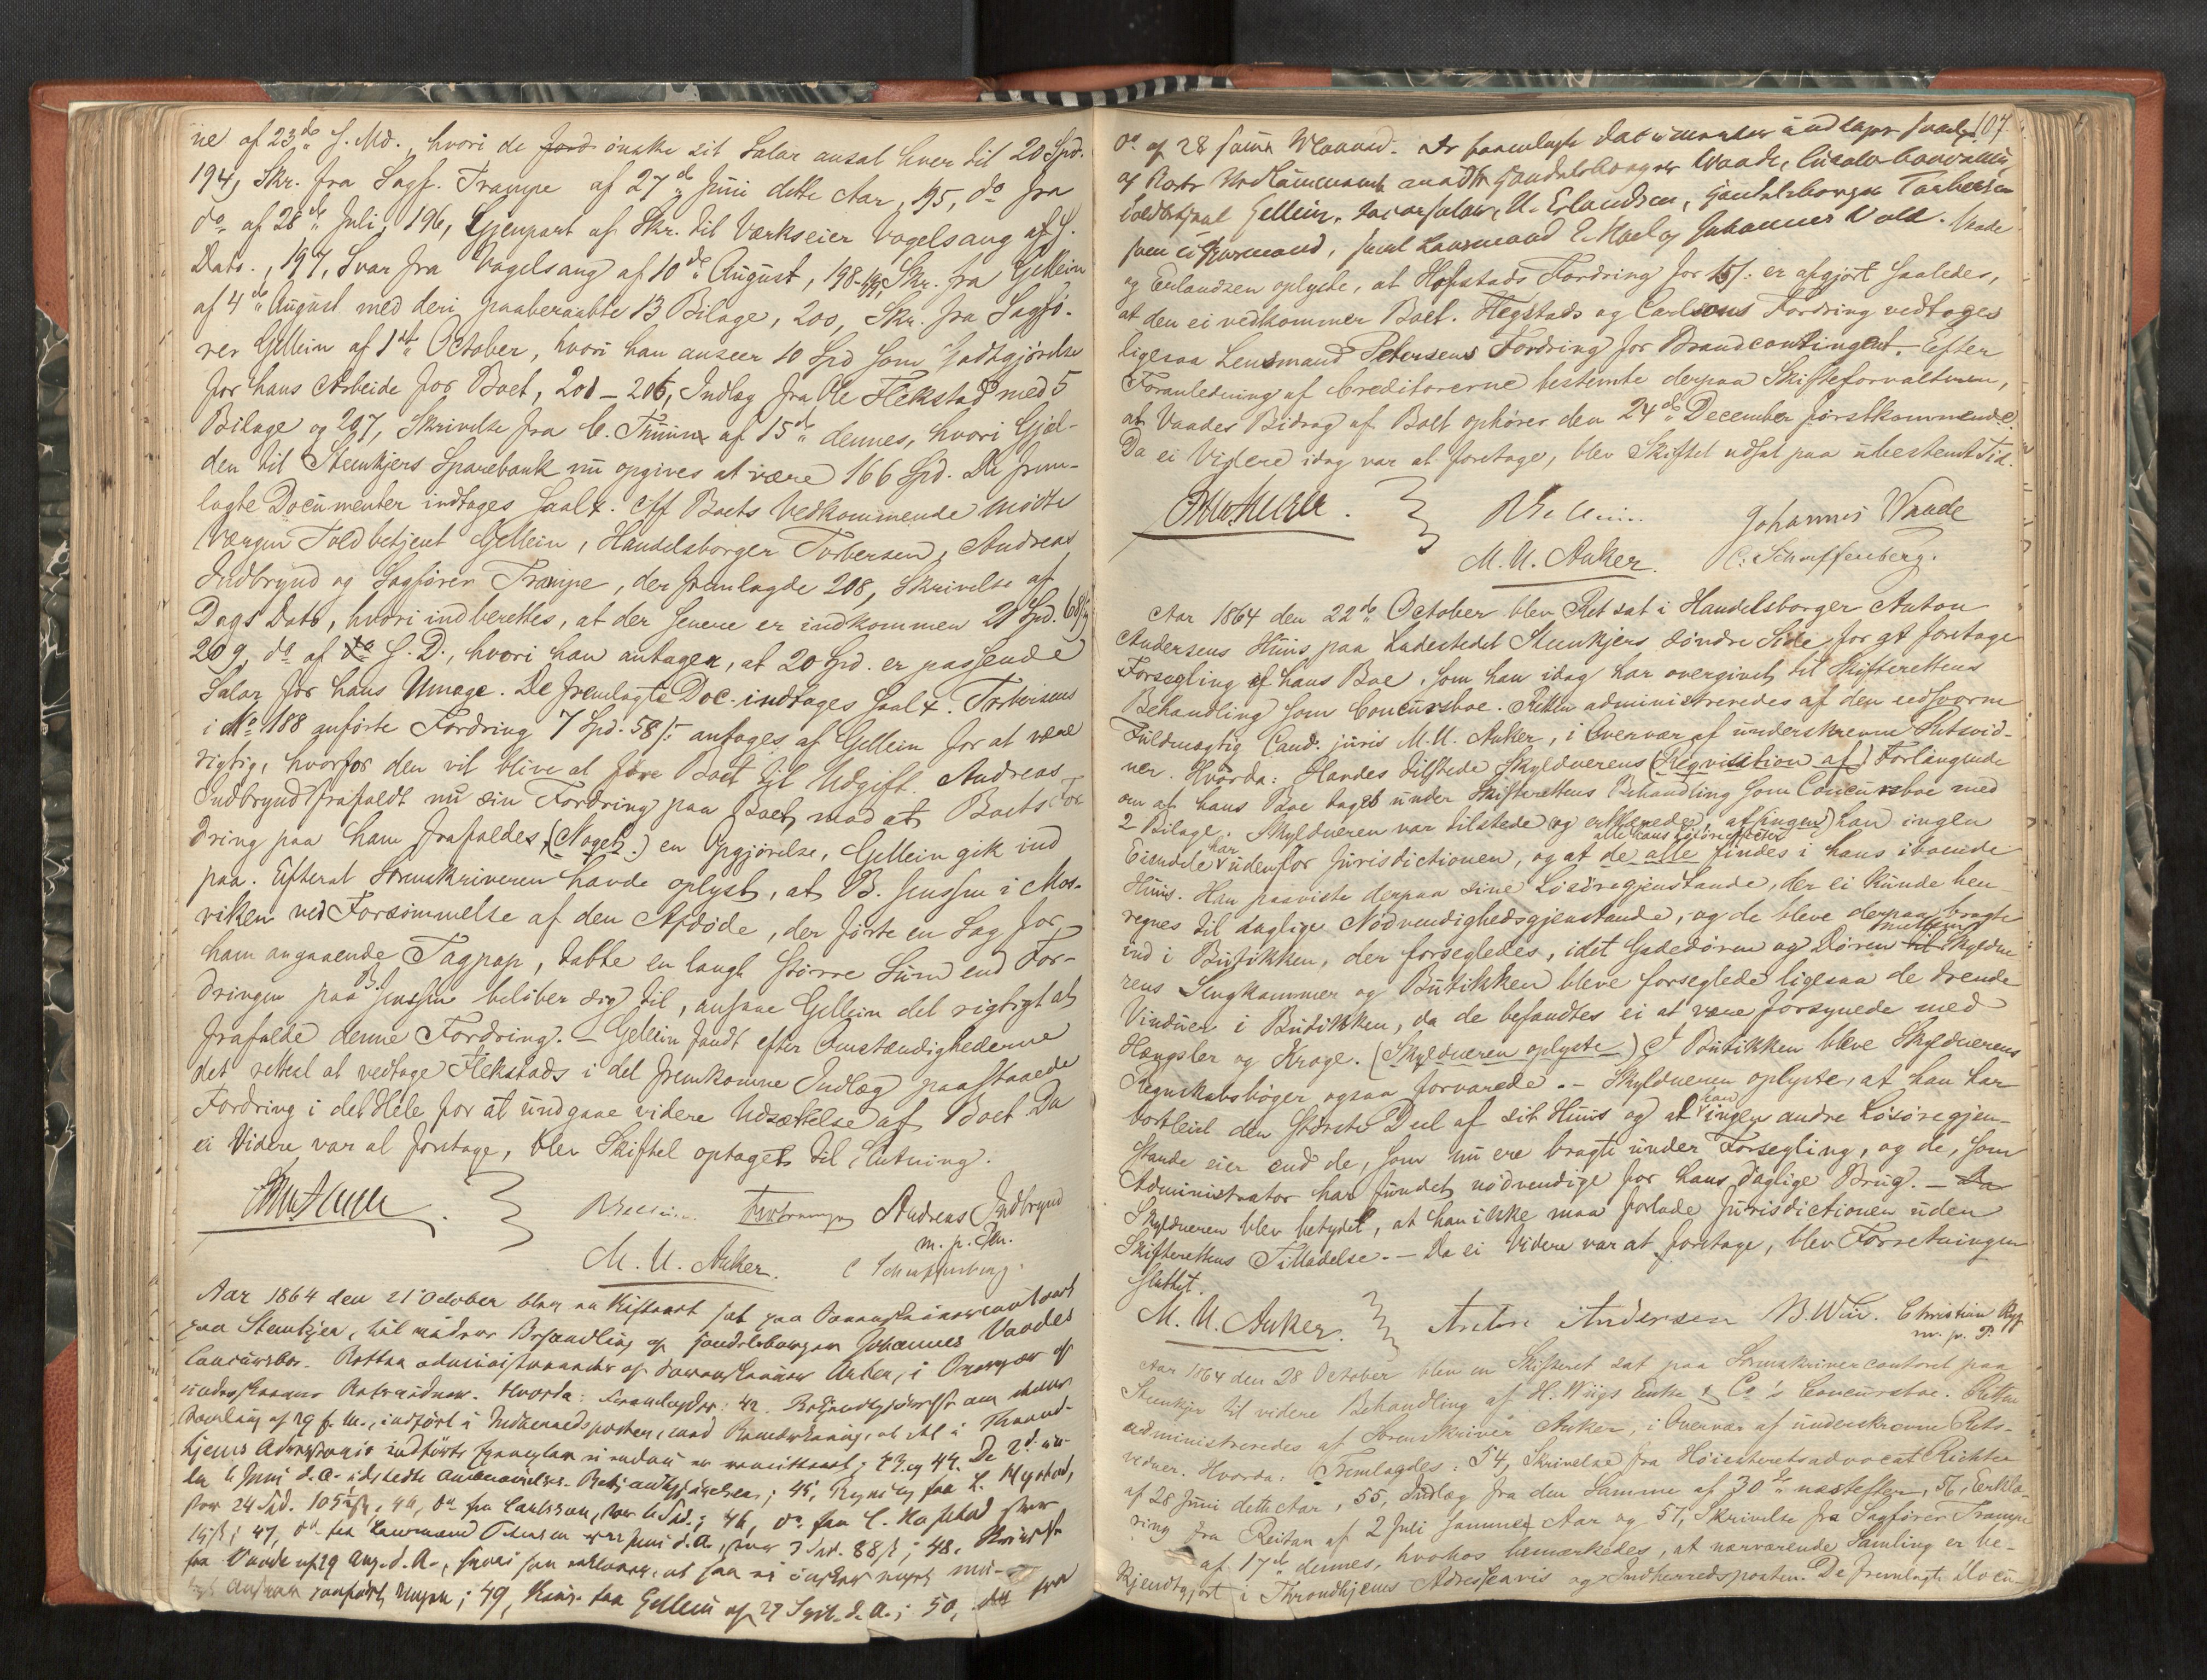 ne af 23de f. Md., hvori de ford ønske sit Salar ansat hver til 20 Spd.
194, Skr. fra Sagf. Trampe af 27de Juni dette Aar, 195, do fra
do af 28de Juli, 196, Gjenpart af Skr. til Værkseier Vogelsang af s.
Dato., 197, Svar fra Vogelsang af 10de August, 198-199, Skr. fra Gellein
af 4de August med deri paaberaabte 13 Bilage, 200, Skr. fra Sagfø-
rer Gellein af 1ste October, hvori han anseer 10 Spd som Godtgjørelse
for hans Arbeide for Boet, 201-206, Indlæg fra Ole Flekstad med 5
Bilage og 207, Skrivelse fra C. af 15de dennes, hvori Gjæl-
den til Stenkjers Sparebank nu opgives at være 166 Spd. De frem-
lagte Documenter indtages saal. +. Af Boets Vedkommende mødte
Værgen Toldbetjent Gellein, Handelsborger Torbersen, Andreas
Indbrynd og Sagfører Trampe, der fremlagde 208, Skrivelse af
Dags Dato, hvori indberettes, at der senere er indkommen 21 Spd. 68 ß
209, do af do s. D., hvori han antager, at 20 Spd. er passende
Salar for hans Umage. De fremlagte Doc. indtages saal. +. Torbersens
i No 188 anførte Fordring 7 Spd. 58 ß antages af Gellein for at være
rigtig, hvorfor den vil blive at føre Boet til Udgift. Andreas
Indbrynd frafaldt nu sin Fordring paa Boet, mod at Boets For
dring paa ham frafaldes, (Noget.) en Opgjørelse, Gellein gik ind
paa. Efterat Sorenskriveren havde oplyst, at B. Jenssen i Mos-
viken ved Forsømmelse af den Afdøde, der førte en Sag for
ham angaaende Tagpap, tabte en langt større Sum end For-
dringen paa B. Jenssen beløber sig til, ansaae Gellein det rigtigt at
frafalde denne Fordring. – Gellein fandt efter Omstændighederne
det rettest at vedtage Flekstads i det fremkomne Indlæg paastaaede
Fordring i det Hele for at undgaae videre Udsættelse af Boet. Da
ei Videre var at foretage, blev Skiftet optaget til Slutning.
Gellein Andreas Indbrynd
m. p. Pen.
M. U. Anker. C Schauffenberg.
Aar 1864 den 21 October blev en Skifteret sat paa Sorenskrivercontoret
paa Stenkjær, til videre Behandling af Handelsborger Johannes Vaades
Concursbo. Retten administreredes af Sorenskriver Anker, i Overvær af
underskrevne Retsvidner. Hvorda: Fremlagdes: 42. Bekjendtgjørelse om denne
Samling af 29 f. M., indført i Indherredsposten, med Bemærkning, at det i Thrond-
hjems Adresseavis indførte Exemplar ei endnu er remitteret; 43 og 44. De 2de un-
der 6 Juni d. A. udstedte Bekjendtgjørelser; 45, Regning fra L. Hegstad,
stor 24 Spd. 105 ß; 46, do fra Carlsson, stor 6 Spd.; 46, do fra C. Hofstad stor
15 ß; 47, do fra Lensmand Petersen Juni d. A., stor 3 Spd. 88 ß; 48. Skrivelse
fra Vaade af 29 Aug. d. A., hvori han erklærer, at han ei ønsker noget
; 49, Skriv. fra Gellein af 27 Sept. d. A.; 50, do fra
107.
do af 28 samme Maaned. De fremlagte Documenter indtages saal. +.
af Rets Vedkommende mødte Handelsborger Waade, Curator bonorum,
Toldbetjent Gellein, Incassator, U. Erlandsen, Handelsborger Torbersen
som Kjøbmand, samt Lensmand E. Moel og Johannes Vold. Vaade
og Erlandsen oplyste, at Hofstads Fordring for 15 ß. er afgjort saaledes,
at den ei vedkommer Boet. Hegstads og Carlssons Fordring vedtoges
ligesaa Lensmand Petersens Fordring for Brandcontingent. – Efter
Foranledning af Creditorerne bestemte derpaa Skifteforvalteren,
at Vaades Bidrag af Boet ophører den 24de December førstkommende.
Da ei Videre idag var at foretage, blev Skiftet udsat paa ubestemt Tid.
Gellein Johannes Waade
M. U. Anker. C. Schauffenberg.
Aar 1864 den 22de October blev Ret sat i Handelsborger Anton
Andersens Huus paa Ladestedet Steenkjers søndre Side, for at foretage
Forsegling af hans Boe, som han idag har overgivet til Skifterettens
Behandling som Concursboe. Retten administreredes af den eedsvorne
Fuldmægtig Cand. juris M. U. Anker, i Overvær af underskrevne Retsvid-
ner. Hvorda: Havdes tilstede Skyldnerens (Reqvisition af) Forlangende
om at hans Boe tages under Skifterettens Behandling som Concursboe med
2 Bilage. Skyldneren var tilstede og erklærede, at (ingen) han ingen
Eiendele har udenfor Jurisdictionen, og at de alle alle hans Løsøreeffecter findes i hans iboende
Huus. Han paaviste derpaa sine Løsøregjenstande, der ei kunde hen-
regnes til daglige Nødvendighedsgjenstande, og de bleve derpaa bragte
ind i Butikken, der forsegledes, idet Gadedøren og Døren til mellem Skyldne-
rens Sengkammer og Butikken bleve forseglede ligesaa de trende
Vinduer i Butikken, da de befandtes ei at være forsynede med
Hængsler og Kroge. (Skyldneren oplyste) I Butikken bleve Skyldnerens
Regnskabsbøger ogsaa forvarede. – Skyldneren oplyste, at han har
bortleiet den største Deel af sit Huus og at han ingen andre Løsøregjen-
stande eier end de, som nu ere bragte under Forsegling, og de, som
Administrator har fundet nødvendige for hans daglige Brug. – Da
Skyldneren blev betydet, at han ikke maa forlade Jurisdictionen uden
Skifterettens Tilladelse. – Da ei Videre var at foretage, blev Forretningen
sluttet.
M. U. Anker. Anton Andersen B. Wiir. Christian Ryg
m. p. P.
Aar 1864 den 28 October blev en Skifteret sat paa Sorenskrivercontoret paa
Stenkjer til videre Behandling af H. Wiigs Enke & Co's Concursboe. Retten
administreredes af Sorenskriver Anker, i Overvær af underskrevne Rets-
vidner. Hvorda: Fremlagdes: 54, Skrivelse fra Høiesteretsadvocat Richter
af 28 Juni dette Aar, 55, Indlæg fra den Samme af 30te næstefter, 56, Erklæ-
ring fra Reitan af 2 Juli samme Aar og 57, Skrivelse fra Sagfører Trampe
af 17de dennes, hvorhos bemærkedes, at nærværende Samling er be-
kjendtgjort i Throndhjems Adresseavis og Indherredsposten. De fremlagte Docu-